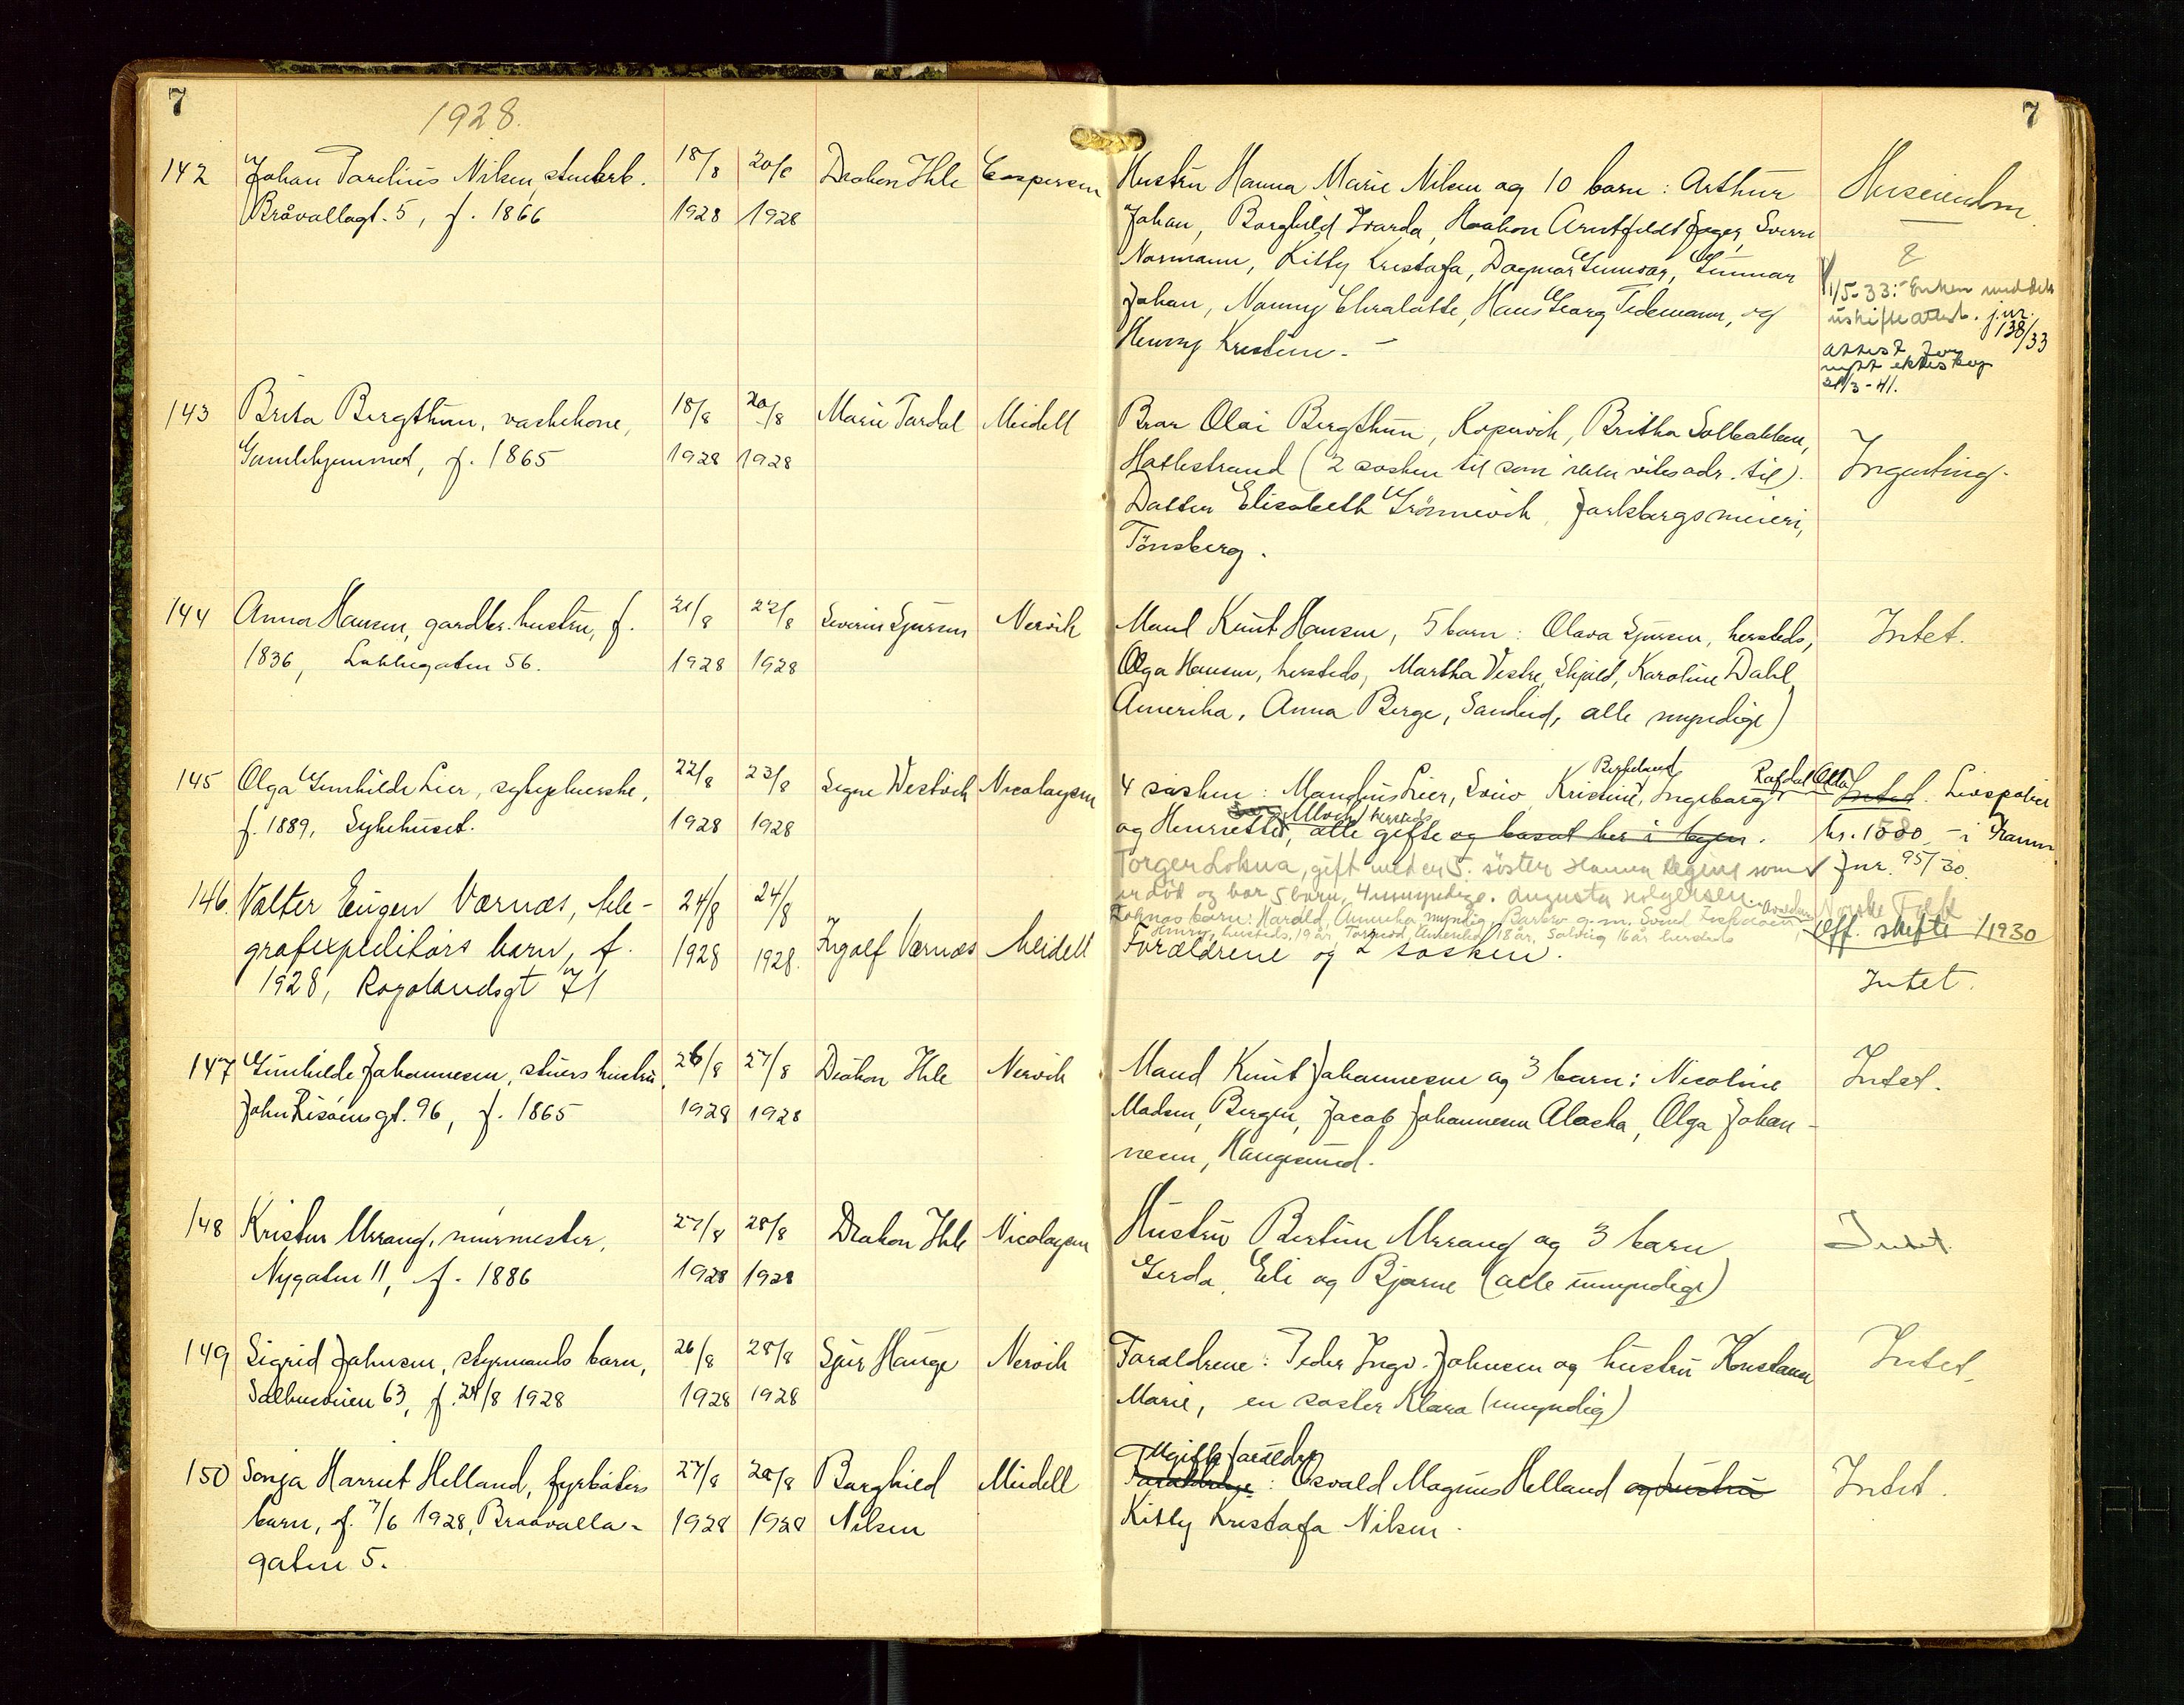 7
1928.
7
142 Johan Parelius Nilsen, stuerarb. 18/8 20/8 Diakon Ihle Caspersen
Bråvallagt. 5, f. 1866 1928 1928
Hustru Hanna Marie Nilsen og 10 barn: Arthur
Johan, Borghild Ivarda, Haakon Arntfeldt Jager, Sverre
Normann, Kitty Kristofa, Dagmar Gunvor, Gunnar
Johan, Nanny Charlotte, Hans Georg Tidemann, og
Henny Kristine. -
Huseiendom
1/5-33: Enken meddelt
uskifteattest. jnr.
138/33
Attest for
nytt ekteskap
21/3-41.
143 Brita Bergthun, vaskekone, 18/8 20/8 Marie Tardal Meidell
Gamlehjemmet, f. 1865 1928 1928
Bror Olai Bergthun, Kopervik, Britha Solbakken,
Hattestrand (2 søsken til som ikke vites adr. til).
Datter Elisabeth Grönnevik, Jarlsbergs meieri,
Tönsberg.
Ingenting.
144 Anna Hansen, gardbr. hustru, f. 21/8 22/8 Severin Sjursen Nervik
1836, Lakkegaten 56. 1928 1928
Mand Knut Hansen, 5 barn: Olava Sjursen, hersteds,
Olga Hansen, hersteds, Martha Vestre, Skjold, Karoline Dahl
Amerika, Anna Berge, Sandeid, alle myndige)
Intet.
145 Olga Gunhilde Lier, sykepleierske, 22/8 23/8 Signe Westvik Nicolaysen
f. 1889, Sykehuset. 1928 1928
Birkeland
4 søsken: Mandius Lier, Sveio, Kristine, Ingeborg
Alvik, hersteds
og Henriette, alle gifte og bosat her i byen.
Torger Lokna, gift med en 5. söster Hanna Regine som
er död og har 5 barn, 4 umyndige. Augusta Holgersen
Loknas barn: Harald, Amerika myndig,
Henry, hersteds, 19 år, Tormod, Amerika, 18 år, Solveig 16 år hersteds
Intet. Livspolise
kr. 1500,- i Fram
Jnr. 95/30.
Norske Folk
Off. skifte 1/1930
146. Valter Eugen Værnæs, tele- 24/8 24/8
grafexpeditørs barn, f. 1928 1928. Ingolf Værnæs Meidell
1928, Rogalandsgt 71
Forældrene og 2 søsken.
Intet.
147 Gunhilde Johannesen, stuers hustru, 26/8 27/8 Diakon Ihle Nervik
John Risöens gt. 96, f. 1865 1928 1928
Mand Knut Johannesen og 3 barn: Nicoline
Madsen, Bergen, Jacob Johannesen Alaska, Olga Johan-
nesen, Haugesund.
Intet.
148 Kristen Urrang, murmester, 27/8 28/8 Diakon Ihle Nicolaysen
Nygaten 11, f. 1886 1928 1928
Hustru Bertine Urrang og 3 barn
Gerda, Eli og Bjarne (alle umyndige)
Intet.
149 Sigrid Johnsen, styrmands barn, 26/8 28/8 Sjur Hauge Nervik
Salhusveien 63, f. 24/8 1928 1928 1928
Forældrene: Peder Ingv. Johnsen og hustru Konstanse
Marie, en søster Klara (umyndig)
Intet.
150 Sonja Harriet Helland, fyrbøters 27/8 28/8 Borghild Meidell
barn, f. 7/6 1928, Braavalla- 1928 1928 Nilsen
gaten 5.
Ugifte forældre
Forældrene: Osvald Magnus Helland og hustru
Kitty Kristofa Nilsen.
Intet.